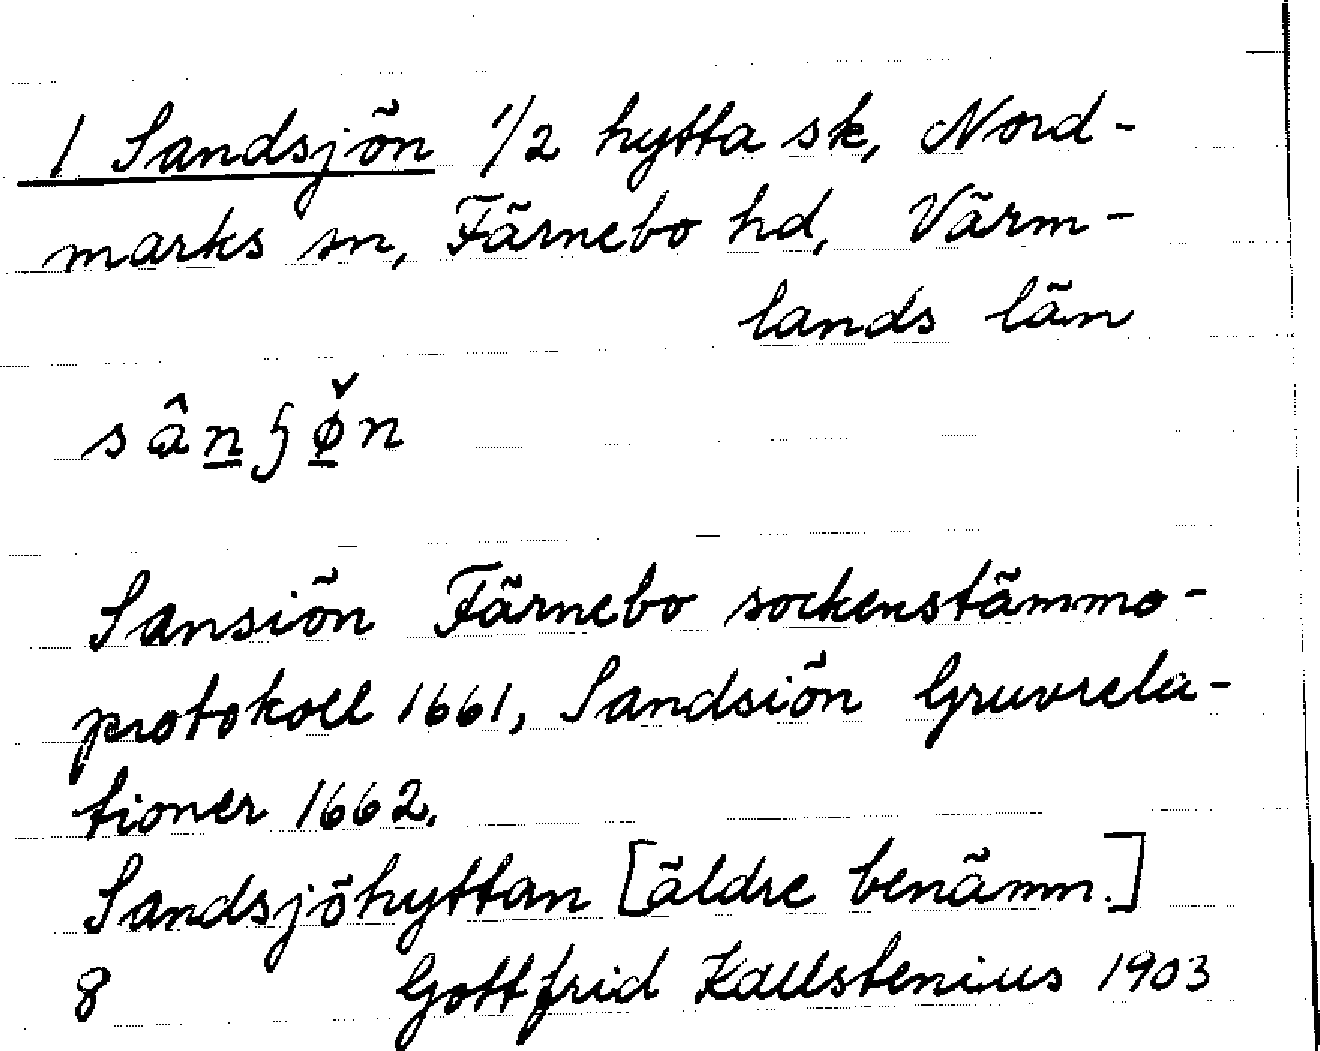 1 Sandsjön 1/2 hytta sk, Nord-
marks sn, Färnebo hd, Värm-
lands län
sân̲ʃø̲̌n
Sansiön Färnebo sockenstämmo-
protokoll 1661, Sandsiön Gruvrela-
tioner 1662.
Sandsjöhyttan [äldre benämn.]
8 Gottfrid Kallstenius 1903